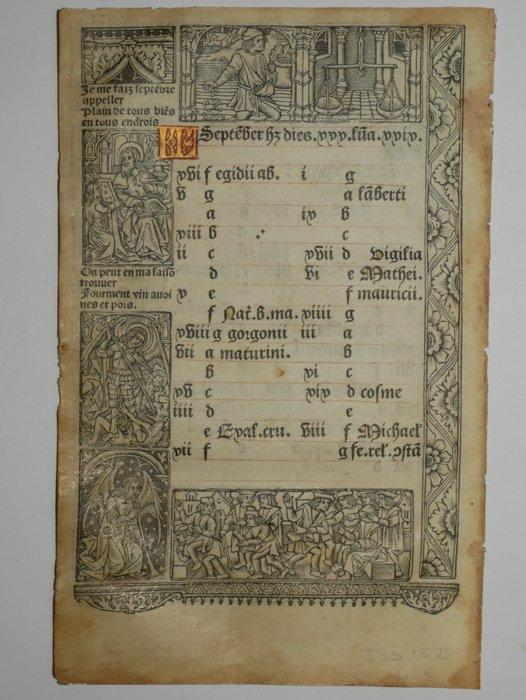 Je me faiz septēbre
appeller
Plain de tous biēs
en tous endrois
On peut en ma saisō
trouver
Fourment vin avoi
nes et pois.
KL Septēber hz dies.xxx.lūa.xxix.
xvi f egidii ab.
v g
a
xiii b
ii c
d
x e
f Nat̄.b.ma.
xviii g gorgonii
vii a maturini.
b
xv c
iiii d
e Exal.cru.
xii f
i g
a lāberti
ix b
c
xvii d Vigilia
vi e Mathei.
f mauricii.
xiiii g
iii a
b
xi c
xix d cosme
e
viii f Michael
g fe.rel.ↄstā